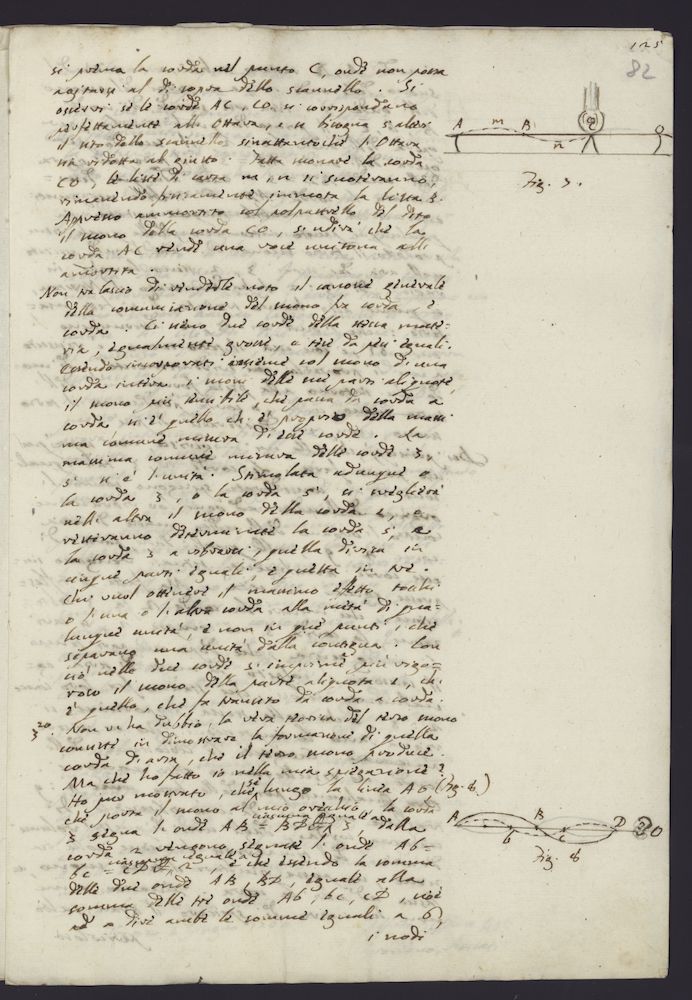 125
82
si prema la corda nel punto C, onde non possa
agitarsi al di sopra dello scannello. Si
osservi se le corde AC, CO si corrispondano
perfettamente all' Ottava, e se bisogna s'alteri
il sito dello scannello sinattantoché l'Ottava
sia ridotta al giusto. Fatta sonare la corda
CO, le liste di carta m, n si scoteranno,
rimanendo pienamente immota la lista B.
Appresso ammortito col polpastrello del dito
il suono della corda CO, s'udirà che la
corda AC rende una voce unisona all'
ammortita.
Non tralascio di renderle noto il canone generale
della comunicazione del suono fra corda, e
corda. Ci sieno due corde della stessa mate-
ria, egualmente grosse, e tese da pesi eguali.
Essendo incorporati assieme col suono di una
corda intera i suoni delle sue parti aliquote,
il suono più sensibile, che passa da corda a
corda si è quello ch'è proprio della massi
ma comune misura di esse corde. La
massima comune misura delle corde 3,
5 si è l'unità. Stimolata adunque o
la corda 3, o la corda 5, si sveglierà
nell' altra il suono della corda 1, e
resteranno determinate la corda 5, e
la corda 3 a vibrarsi, quella divisa in
cinque parti eguali, e questa in tre.
Chi vuol ottenere il massimo effetto tocchi
o l'una o l'altra corda alla metà di qua-
lunque unità, e non in que' punti, che
separano una unità dalla contigua. Con
ciò nelle due corde s'imprime più vigo-
roso il suono della parte aliquota 1, ch'
è quello, che fa transito da corda a corda.
Non vi ha dubbio, la vera teoria del terzo suono
consiste in dimostrare la formazione di quella
corda di aria, che il terzo suono produce.
Ma che ho fatto io nella mia spiegazione?
Ho pur mostrato, che se lungo la linea AO (Fig. 8.)
che porta il suono al mio orecchio, la corda
3 segna l'onde AB = BD = 3, dalla
ciascuna eguale a
corda 2 vengono segnate l'onde Ab =
bc = cD = 2, e che essendo la somma
ciascuna eguale a
delle due onde AB, BD, eguale alla
somma delle tre onde Ab, bc, cD, cioè
ambe le somme eguali a 6,
i nodi
A m B C O
n
Fig. 7.
A B D O
b c
Fig. 8